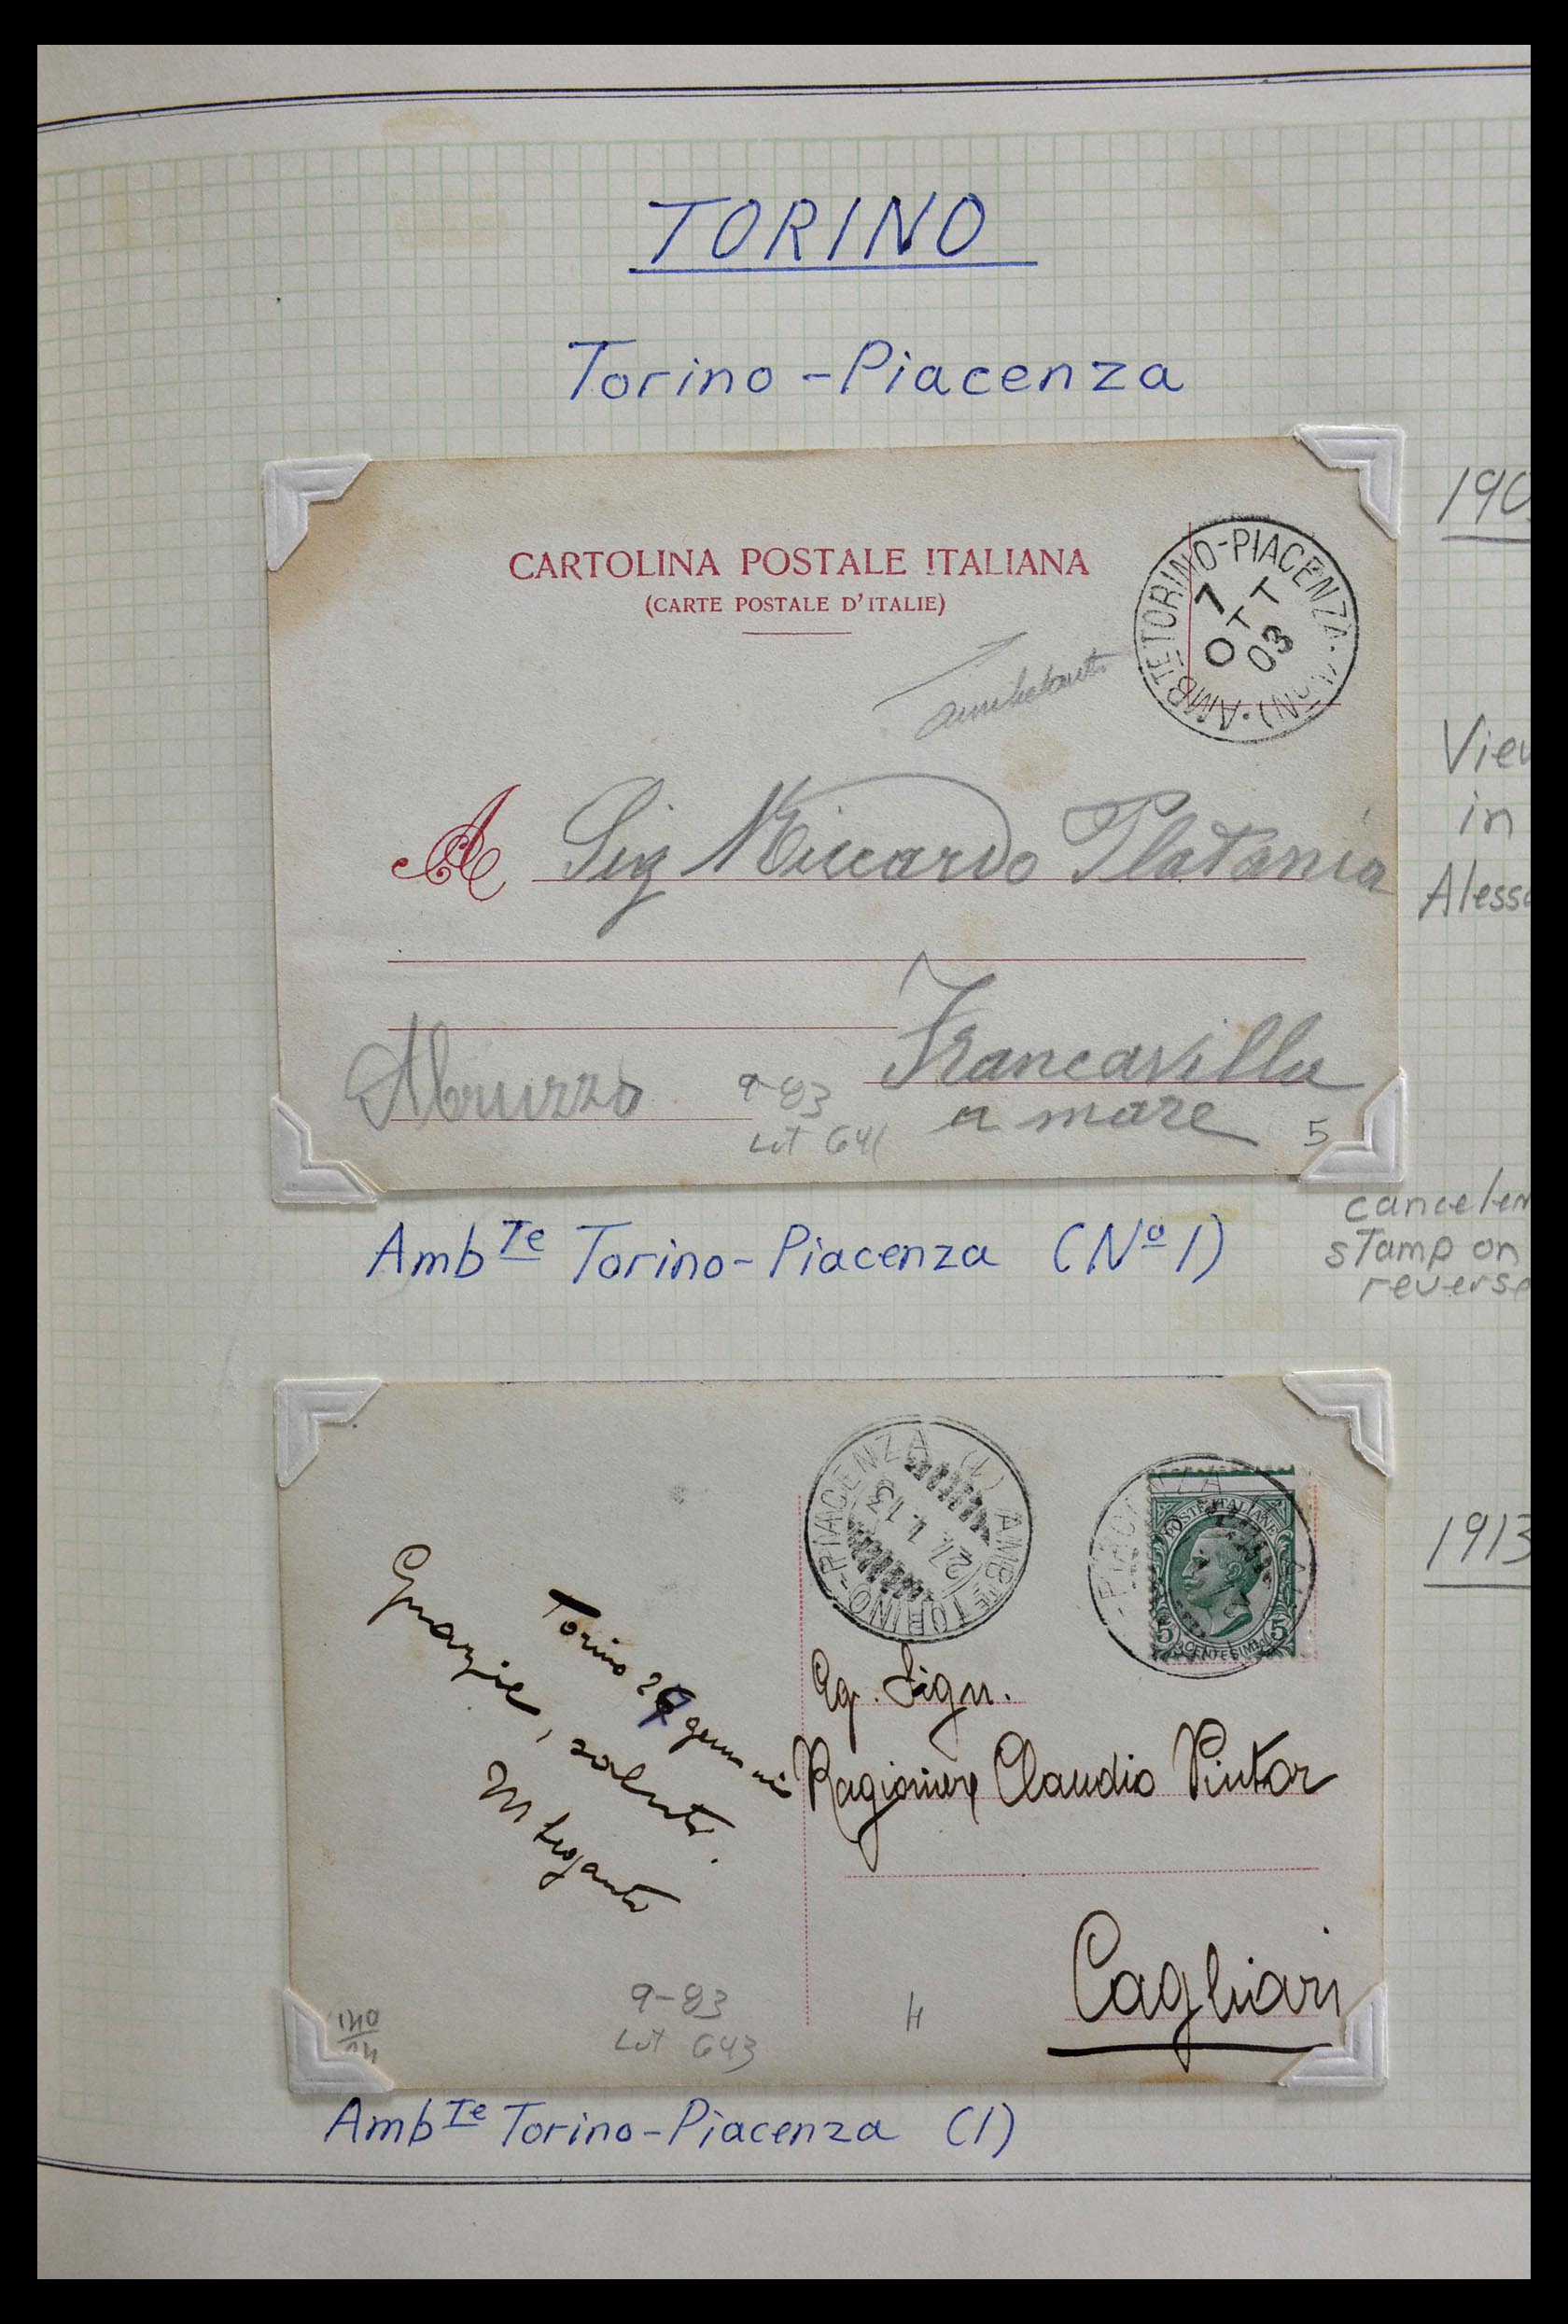 TORINO
Torino - Piacenza
190
CARTOLINA POSTALE ITALIANA
(CARTE POSTALE D'ITALIE)
AMBTE TORINO-PIACENZA. (N.1).
7 OTT 03
ambulante
View
in
Aless
A Sig Riccardo Platania
Francavilla
Abruzzo
a mare
9-83
Lot 641
5
cancel
stamp on
reverse
Ambte Torino-Piacenza (Nº 1)
AMBTE TORINO-PIACENZA (1)
27.1.13
-PIACENZA
POSTE ITALIANE
5 CENTESIMI 5
1913
Torino 27 gennaio
Grazie, saluti.
Eg. Sign.
Ragioniere Claudio Pintor
Cagliari
9-83
Lot 643
Ambte Torino-Piacenza (1)